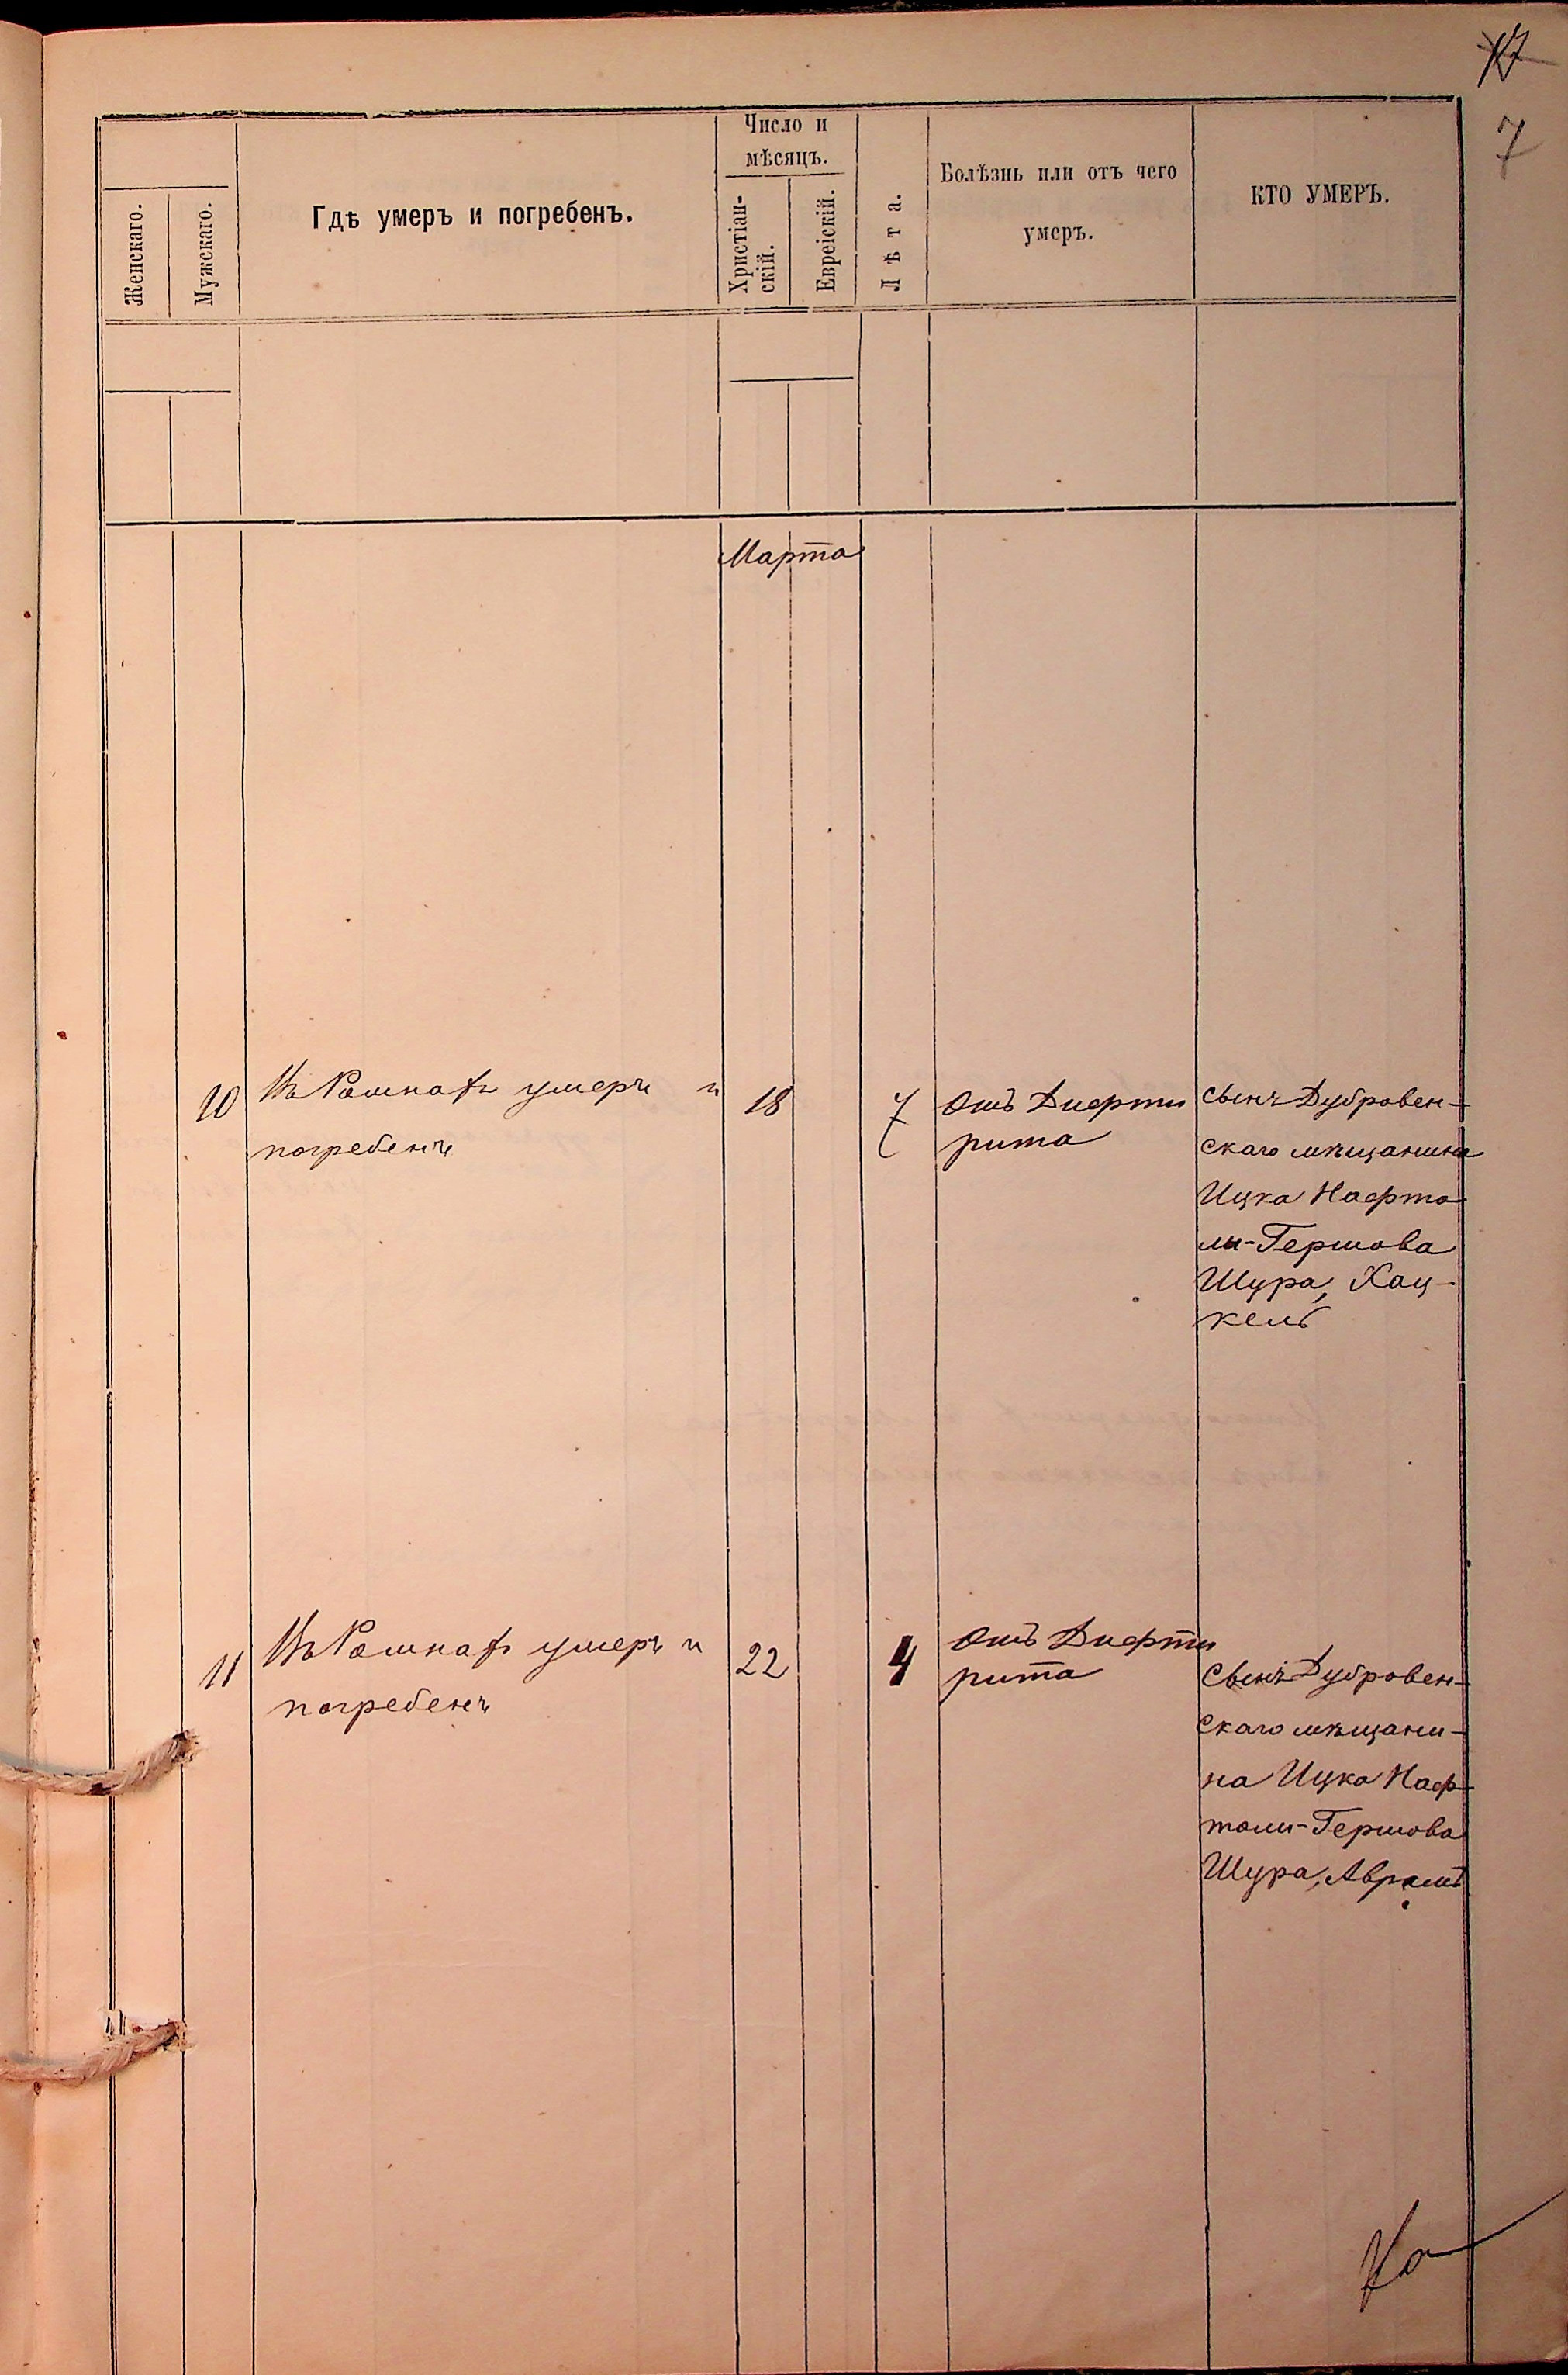 7
Число и
мѣсяцъ.
Женскаго.
Мужскаго.
Гдѣ умеръ и погребенъ.
Христіан-
скій.
Еврейскій.
Лѣта.
Болѣзнь или отъ чего
умеръ.
КТО УМЕРЪ.
Марта
10
Въ Ромнахъ умеръ и
погребенъ
18
7
Отъ Дифти
рита
сынъ Дубровен-
скаго мѣщанина
Ицка Нафто
ли-Гершова
Щура, Хац-
кель
11
Въ Ромнахъ умеръ и
погребенъ
22
4
Отъ Дифти
рита
сынъ Дубровен-
скаго мѣщани-
на Ицка Наф-
толи-Гершова
Щура, Аврамъ